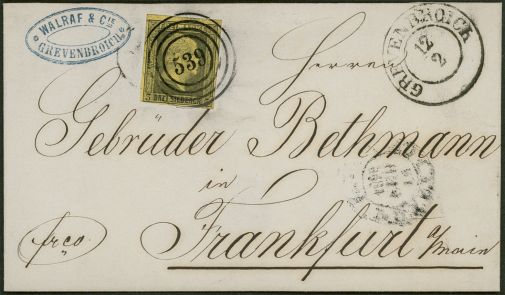 WALRAF & CIE
GREVENBROICH
539
DREI SILBERGR.
GREVENBROICH
12
2
Herren
Gebrüder Bethmann
in
Frankfurt a/main
frco